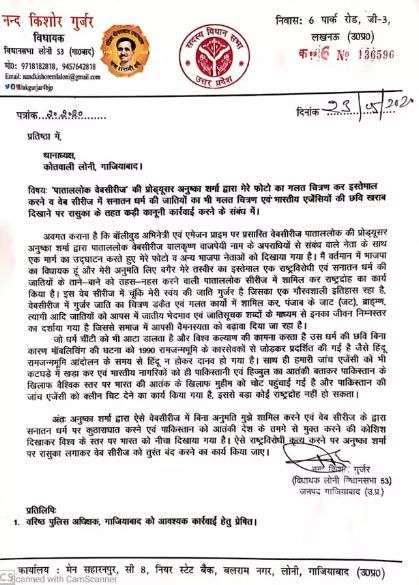 नन्द किशोर गुर्जर
विधायक
विधानसभा लोनी 53 (गा०बाद)
मो0: 9718182818, 9457642818
Email: nandkishoremlaloni@gmail.com
@nkgurjar4bjp
सदस्य विधान सभा
उत्तर प्रदेश
निवास: 6 पार्क रोड, जी-3,
लखनऊ (उ0प्र0)
No 136596
पत्रांक
दिनांक 23/05/202
प्रतिष्ठा में,
थानाध्यक्ष,
कोतवाली लोनी, गाजियाबाद।
विषयः 'पाताललोक वेबसीरीज' की प्रोड्यूसर अनुष्का शर्मा द्वारा मेरे फोटो का गलत चित्रण कर इस्तेमाल
करने व वेब सीरीज में सनातन धर्म की जातियों का भी गलत चित्रण एवं भारतीय एजेंसियों की छवि खराब
दिखाने पर रासुका के तहत कड़ी कानूनी कार्रवाई करने के संबंध में।
अवगत कराना है कि बॉलीवुड अभिनेत्री एवं एमेजन प्राइम पर प्रसारित वेबसीरीज पाताललोक की प्रोड्यूसर
अनुष्का शर्मा द्वारा पाताललोक वेबसीरीज बालकृष्ण वाजपेयी नाम के अपराधियों से संबंध वाले नेता के साथ
एक मार्ग का उद्घाटन करते हुए मेरे फोटो व अन्य भाजपा नेताओं को दिखाया गया है। मैं वर्तमान में भाजपा
का विधायक हूं और मेरी अनुमति लिए बगैर मेरे तस्वीर का इस्तेमाल एक राष्ट्रविरोधी एवं सनातन धर्म की
जातियों के ताने–बाने को तहस–नहस करने वाली पाताललोक सीरीज में शामिल कर राष्ट्रद्रोह का कार्य
किया है। इस वेब सीरीज में चूंकि मेरी स्वंय की जाति गुर्जर है जिसका एक गौरवशाली इतिहास रहा है,
वेबसीरीज में गुर्जर जाति का चित्रण डकैत एवं गलत कार्यो में शामिल कर, पंजाब के जाट (जट), ब्राह्मण,
त्यागी आदि जातियों को आपस में जातीय भेदभाव एवं जातिसूचक शब्दों के माध्यम से इनका जीवन निम्नस्तर
का दर्शाया गया है जिससे समाज में आपसी वैमनस्यता को बढ़ावा दिया जा रहा है।
जो धर्म चींटी को भी आटा डालता है और विश्व कल्याण की कामना करता है उस धर्म की छवि बिना
कारण मॉबलिंचिंग की घटना को 1990 रामजन्मभूमि के कारसेवकों से जोड़कर प्रदर्शित की गई है जैसे हिंदू
रामजन्मभूमि आंदोलन के समय से हिंदू न होकर दानव हो गया है। साथ ही हमारी जांच एजेंसी को भी
कटघड़े में खड़ा कर एवं भारतीय नागरिकों को ही पाकिस्तानी एवं हिज्बुल का आतंकी बताकर पाकिस्तान के
खिलाफ वैश्विक स्तर पर भारत की आतंक के खिलाफ मुहीम को चोट पहुंचाई गई है और पाकिस्तान की
जांच एजेंसी को क्लीन चिट देने का कार्य किया गया है, इससे बड़ा कोई राष्ट्रद्रोह नहीं हो सकता।
अंतः अनुष्का शर्मा द्वारा ऐसे वेबसीरीज में बिना अनुमति मुझे शामिल करने एवं वेब सीरीज के द्वारा
सनातन धर्म पर कुठाराघात करने एवं पाकिस्तान को आतंकी देश के तमगे से मुक्त करने की कोशिश
दिखाकर विश्व के स्तर पर भारत को नीचा दिखाया गया है। ऐसे राष्ट्रविरोधी कृत्य करने पर अनुष्का शर्मा
पर रासुका लगाकर वेब सीरीज को तुरंत बंद करने का कार्य किया जाए।
नन्द किशोर गुर्जर
(विधायक लोनी विधानसभा 53)
जनपद गाजियाबाद (उ.प्र.)
प्रतिलिपिः
1. वरिष्ठ पुलिस अधिक्षक, गाजियाबाद को आवश्यक कार्रवाई हेतु प्रेषित।
कार्यालय : मेन सहारनपुर, सी 8, नियर स्टेट बैंक, बलराम नगर, लोनी, गाजियाबाद (उ0प्र0)
CS Scanned with CamScanner